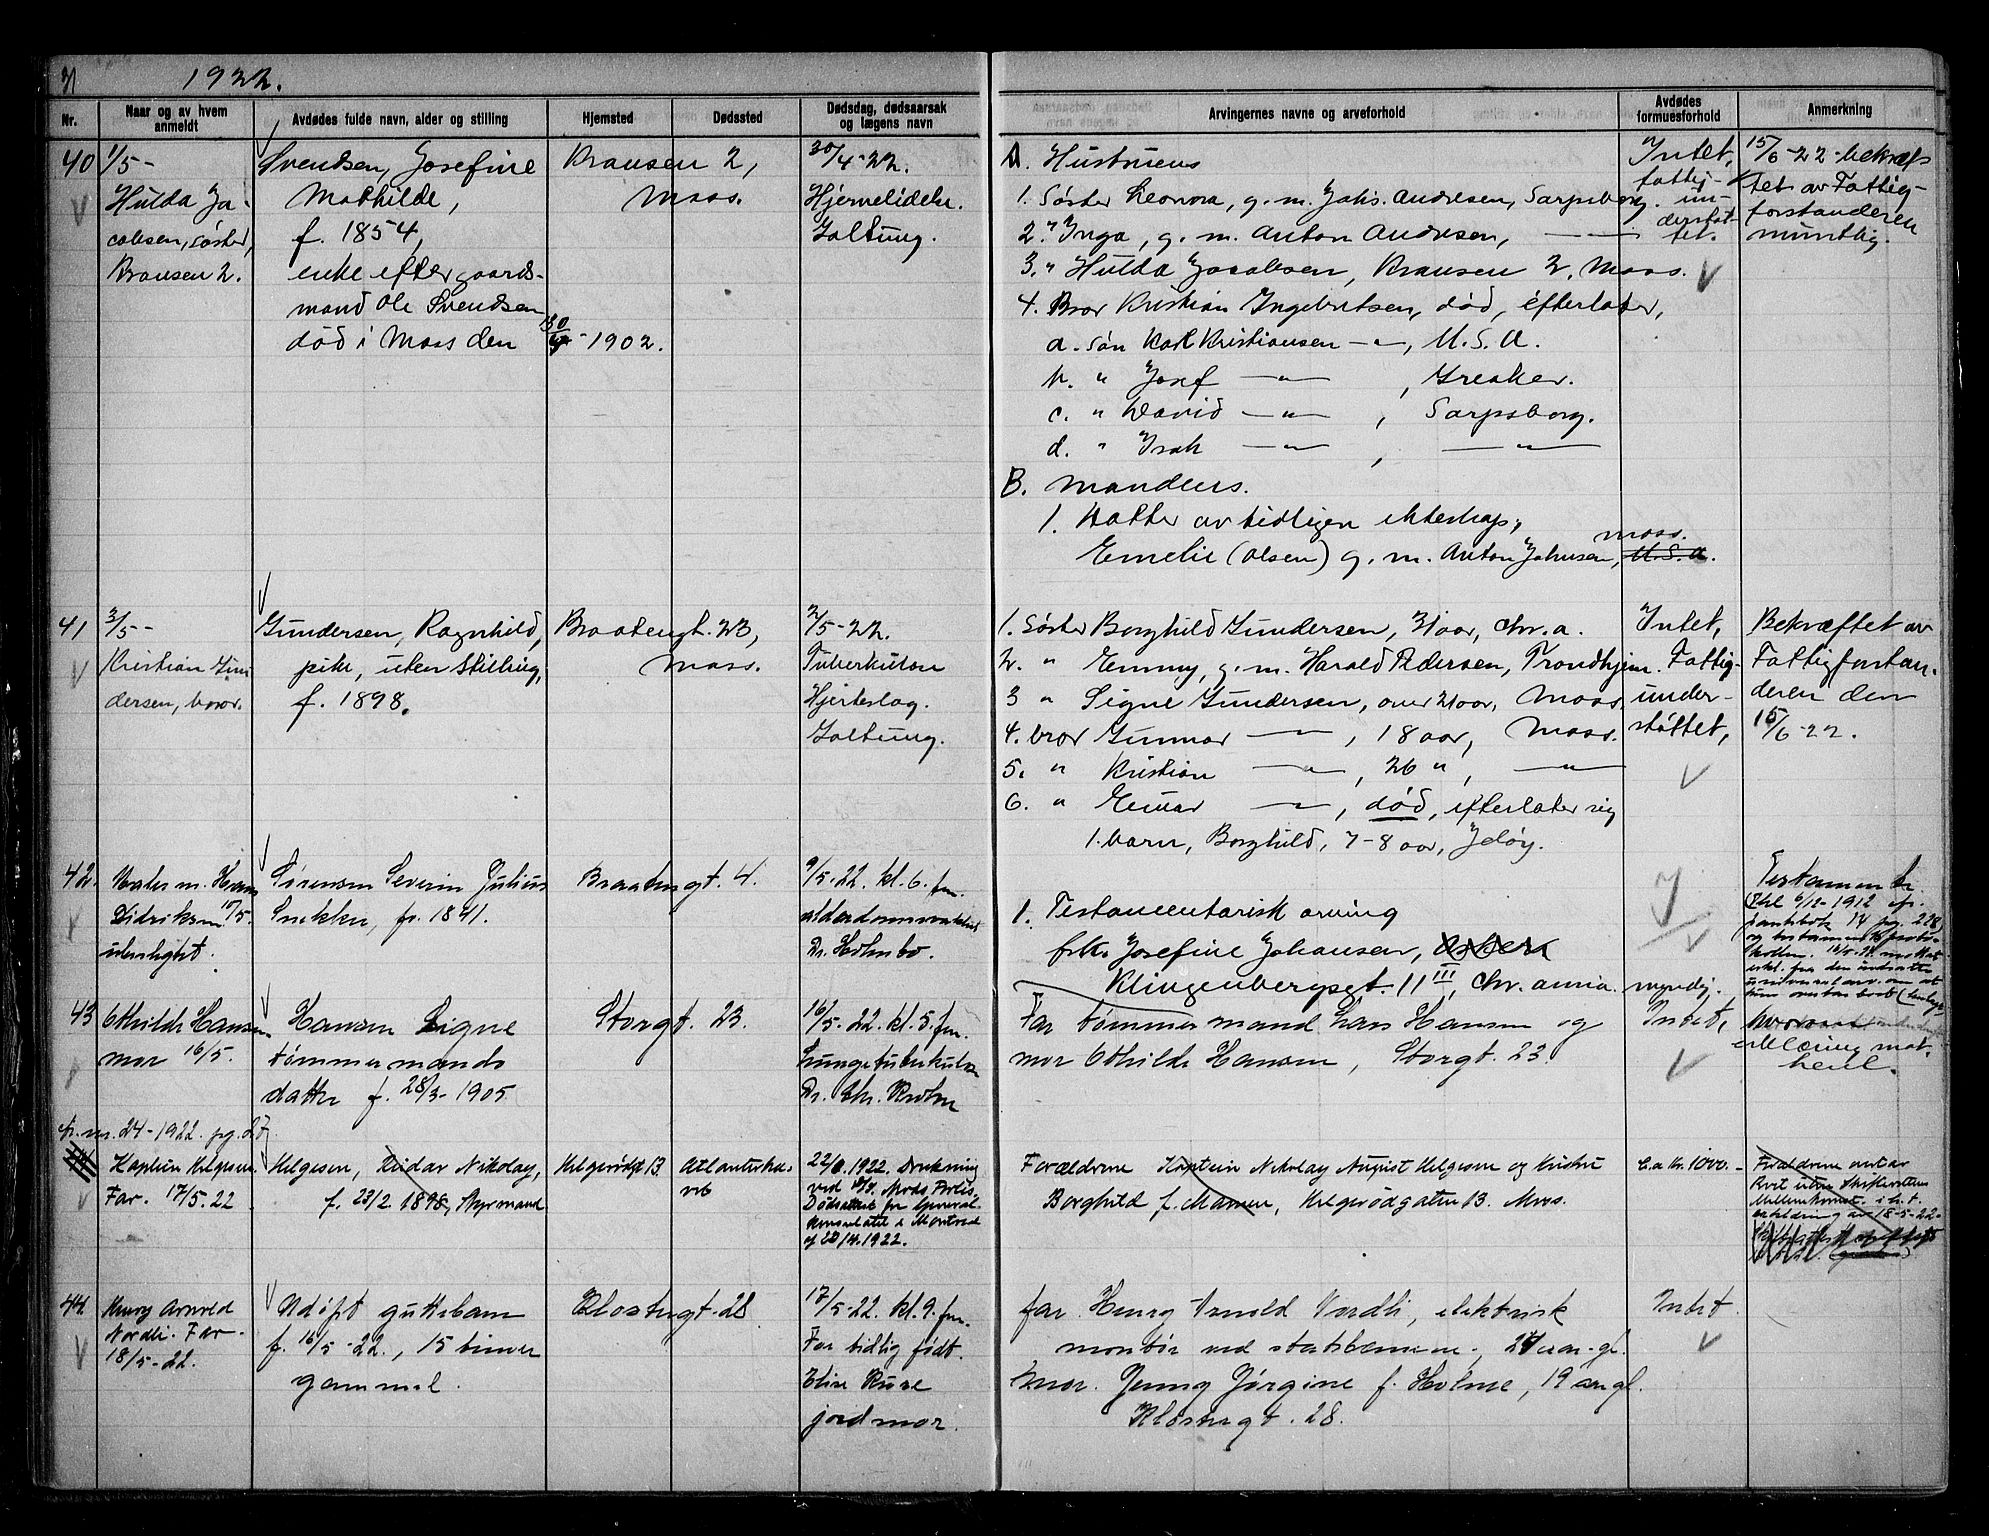 31
1922.
Nr.
Naar og av hvem
anmeldt
Avdødes fulde navn, alder og stilling
Hjemsted
Dødssted
Dødsdag, dødsaarsak
og lægens navn
Arvingernes navne og arveforhold
Avdødes
formuesforhold
Anmerkning
40
1/5 -
Hulda Ja-
cobsen, søster,
Kransen 2.
Svendsen, Josefine
Mathilde,
f. 1854,
enke efter gaards-
mand Ole Svendsen
død i Moss den 30/4 - 1902.
Kransen 2,
Moss.
30/4-22.
Hjernelidelse.
Galtung.
A. Hustruens
1. Søster Leonora, g. m. Johs. Andresen, Sarpsborg.
2. " Inga, g. m. Anton Andresen, — " —
3. " Hulda Jacobsen, Kransen 2, Moss.
4. Bror Kristian Ingebretsen, død, efterlater,
a. Søn Karl Kristiansen — " —, U.S.A.
b. " Josef — " —, Greaker.
c. " David — " —, Sarpsborg.
d. " Isak — " —, — " —
B. Mandens.
1. Datter av tidligere ekteskap,
Emelie (Olsen) g. m. Anton Johnsen, U.S.A.
Moss.
Intet,
fattig-
un-
derstøt-
tet.
15/6-22 bekræf-
tet av Fattig-
forstanderen
muntlig.
41
3/5 -
Kristian Gun-
dersen, bror.
Gundersen, Ragnhild,
pike, uten stilling,
f. 1898.
Braatengt. 23,
Moss.
2/5-22.
Tuberkulose
Hjerteslag.
Galtung.
1. Søster Borghild Gundersen, 31 aar, Chr.a.
2. " Emmy, g. m. Harald Pedersen, Trondhjem.
3 " Signe Gundersen, over 21 aar, Moss.
4. bror Gunnar — " —, 18 aar, Moss.
5. " Kristian — " —, 26 ", — " —
6. " Einar — " —, død, efterlater sig
1. barn, Borghild, 7-8 aar, Jeløy.
Intet,
Fattig-
under-
støttet,
Bekræftet av
Fattigforstan-
deren den
15/6-22.
42.
m. Hans
Didriksen 10/5.
Sørensen Severin Julius
Snekker, f. 1841.
Braatengt. 4.
9/5-22. kl. 6. fm.
alderdomssvakhet
Dr. Holmbo.
1. Testamentarisk arving
frk. Josefine Johansen,
Klingenberggt. 11 III, Chr.ania.
myndig.
Testament
6/12-1912
pg. 228
43
Othilde Hansen
mor 16/5.
Hansen Signe
tømmermands
datter f. 28/3-1905
Storgt. 23.
16/5-22. kl. 5. fm.
Lungetuberkulose
Dr. Chr. Krohn
Far tømmermand Lars Hansen og
mor Othilde Hansen, Storgt. 23
Intet,
erklæring mot-
heril.
fr. nr. 24-1922. pg. 27
44
Kaptein Helgesen.
Far. 17/5.22
Helgesen, Reidar Nikolay,
f. 23/2. 1898, Styrmand
Helgerødgt 13
Atlanterha-
vet
22/1.1922. Drukning
Dødsattest fra General-
konsulatet i Montreal
af 22/4.1922.
Forældrene Kaptein Nikolay August Helgesen og hustru
Borghild f. Marnen, Helgerødgaten 13. Moss.
C.a Kr. 1000.-
Forældrene overtar
boet uten Skifterettens
Mellemkomst.
erklæring av 18-5-22.
44.
Henry Arnold
Nordli. Far.
18/5-22.
Udøpt guttebarn
f. 16/5-22., 15 timer
gammel.
Klostergt. 28
17/5-22. kl. 9. fm.
For tidlig født.
Elise Ruse
jordmor.
far. Henry Arnold Nordli, elektrisk
montør ved statsbanene., 24 aar gl.
Mor. Jenny Jørgine f. Holme, 19 aar gl.
Klostergt. 28.
Intet.